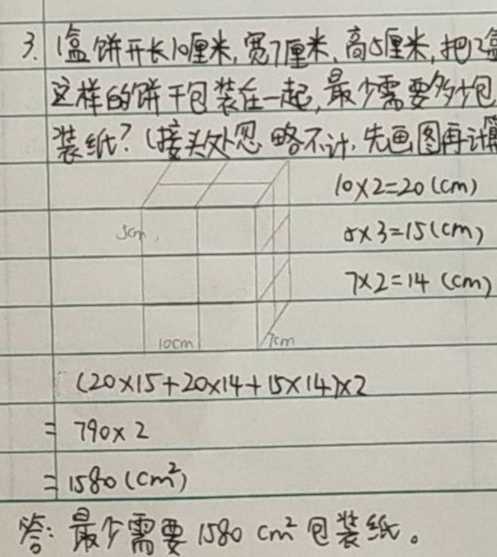 3. 1盒饼干长10厘米,宽7厘米,高5厘米,把12盒
这样的饼干包装在一起,最少需要多少包
装纸?(接头处忽略不计,先画图再计算
10×2=20(cm)
5cm
5×3=15(cm)
7×2=14(cm)
10cm 7cm
(20×15+20×14+15×14)×2
= 790×2
= 1580(cm²)
答:最少需要1580 cm²包装纸。